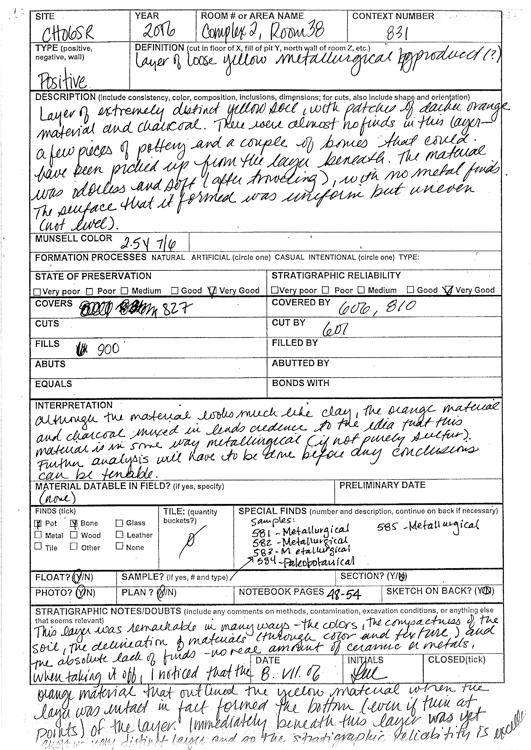 SITE YEAR ROOM # or AREA NAME CONTEXT NUMBER
CH06SR 2006 Complex 2, Room 38 831
TYPE (positive, negative, wall) DEFINITION (cut in floor of X, fill of pit Y, north wall of room Z, etc.)
Positive Layer of loose yellow metallurgical byproduct (?)
DESCRIPTION (include consistency, color, composition, inclusions, dimensions; for cuts, also include shape and orientation)
Layer of extremely distinct yellow soil, with patches of darker orange
material and charcoal. There were almost no finds in this layer -
a few pieces of pottery and a couple of bones that could
have been picked up from the layer beneath. The material
was odorless and soft (after troweling), with no metal finds.
The surface that it formed was uniform but uneven
(not level).
MUNSELL COLOR 2.5Y 7/6
FORMATION PROCESSES NATURAL ARTIFICIAL (circle one) CASUAL INTENTIONAL (circle one) TYPE:
STATE OF PRESERVATION STRATIGRAPHIC RELIABILITY
Very poor Poor Medium Good Very Good Very poor Poor Medium Good Very Good
COVERS 827 COVERED BY 606, 810
CUTS CUT BY 607
FILLS 900 FILLED BY
ABUTS ABUTTED BY
EQUALS BONDS WITH
INTERPRETATION
Although the material looks much like clay, the orange material
and charcoal mixed in lends credence to the idea that this
material is in some way metallurgical (if not purely sulfur).
Further analysis will have to be done before any conclusions
can be tenable.
MATERIAL DATABLE IN FIELD? (if yes, specify) PRELIMINARY DATE
(none)
FINDS (tick) TILE: (quantity buckets?) SPECIAL FINDS (number and description, continue on back if necessary)
Pot Bone Glass
Metal Wood Leather
Tile Other None
Samples:
581 - Metallurgical 585 - Metallurgical
582 - Metallurgical
583 - Metallurgical
584 - Paleobotanical
FLOAT? (Y/N) SAMPLE? (if yes, # and type) SECTION? (Y/N)
PHOTO? (Y/N) PLAN? (Y/N) NOTEBOOK PAGES 48-54 SKETCH ON BACK? (Y/N)
STRATIGRAPHIC NOTES/DOUBTS (include any comments on methods, contamination, excavation conditions, or anything else that seems relevant)
This layer was remarkable in many ways - the colors, the compactness of the
soil, the delineation of materials (through color and texture) and
the absolute lack of finds - no real amount of ceramic or metals.
When taking it off, I noticed that the
DATE INITIALS CLOSED(tick)
8.VII.06
orange material that outlined the yellow material when the
layer was intact in fact formed the bottom (even if thin at
points) of the layer. Immediately beneath this layer was yet
another very distinct layer and so the stratigraphic reliability is